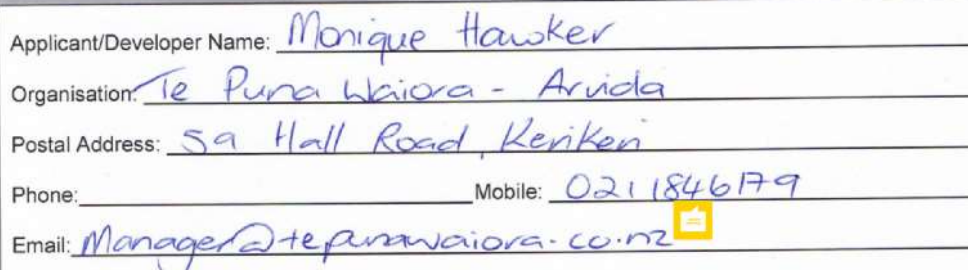 Applicant/Developer Name: Monique Hawker
Organisation: Te Puna Waiora - Arvida
Postal Address: 5a Hall Road, Kerikeri
Phone: Mobile: 0211846179
Email: Manager@tepunawaiora.co.nz